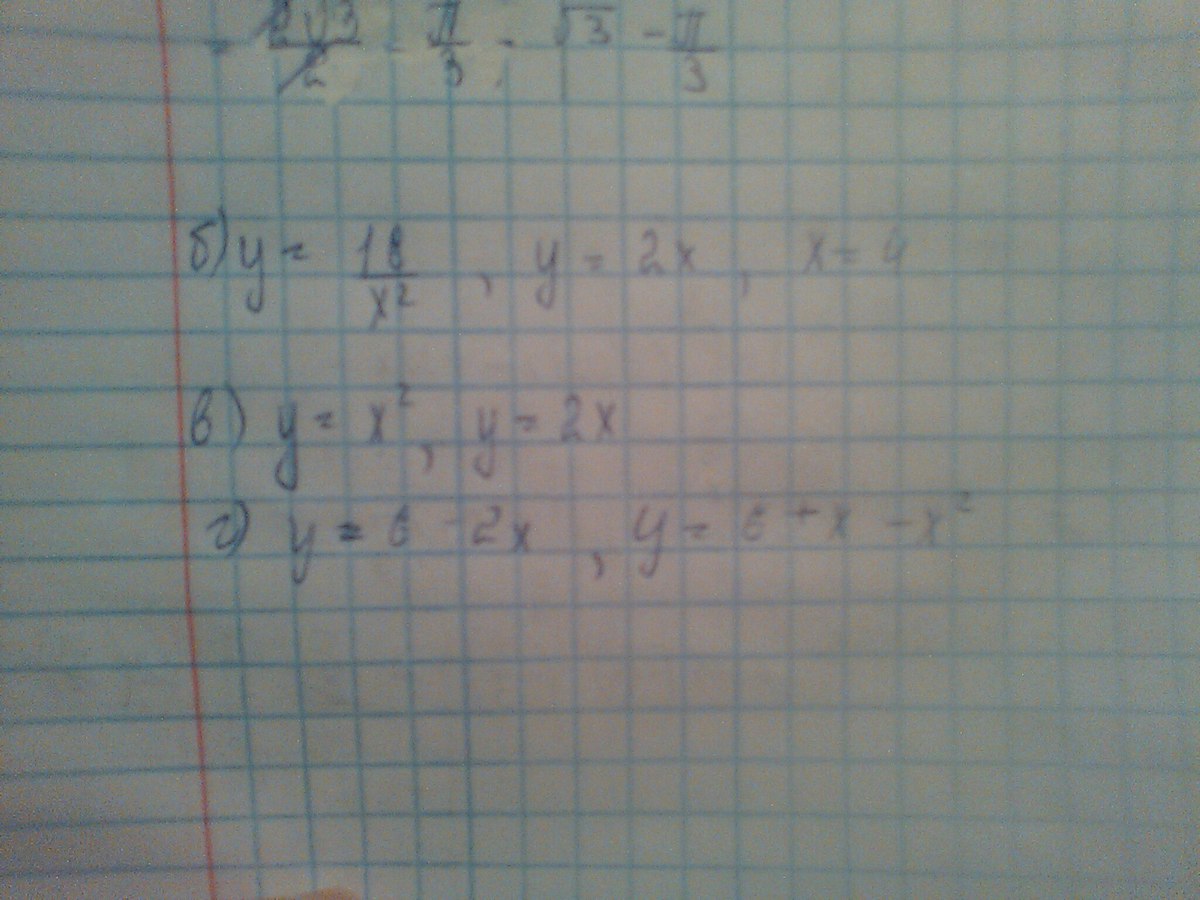 = 2√3/2 - π/3 = √3 - π/3
б) y = 18/x², y = 2x, x = 4
в) y = x², y = 2x
г) y = 6 - 2x, y = 6 + x - x²